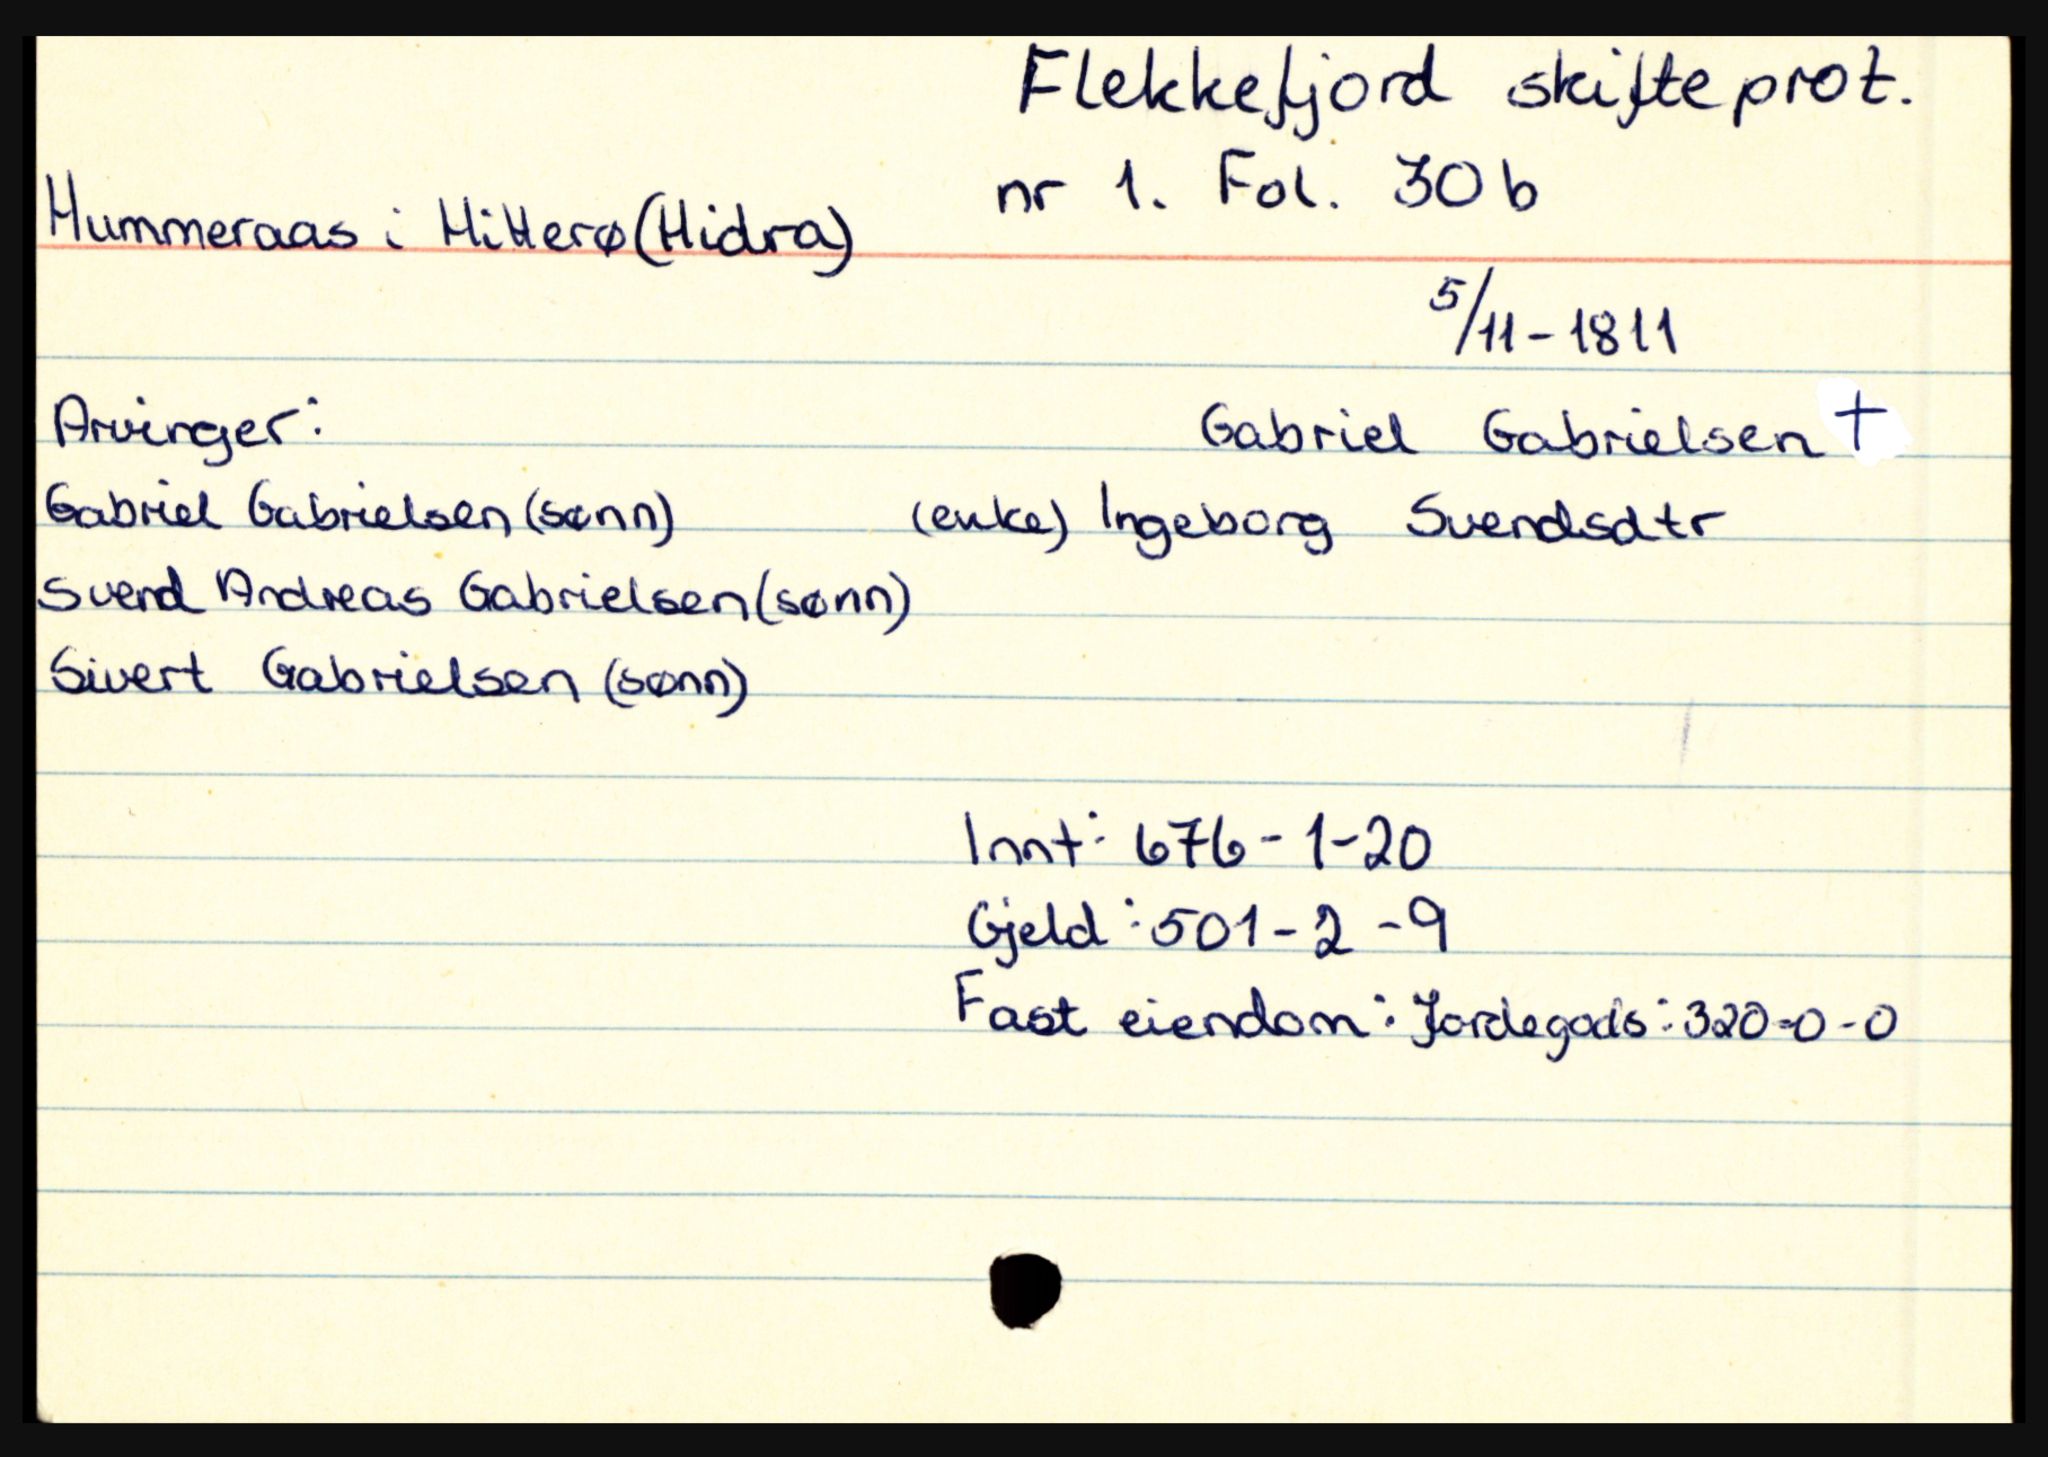 Flekkefjord skifteprot.
nr 1. Fol. 30 b
Hummeraas i Hitterø (Hidra)
5/11-1811
Arvinger:
Gabriel Gabrielsen +
Gabriel Gabrielsen (sønn)
(enke) Ingeborg Svendsdtr
Svend Andreas Gabrielsen (sønn)
Sivert Gabrielsen (sønn)
Innt: 676-1-20
Gjeld: 501-2-9
Fast eiendom: Jordegods: 320-0-0